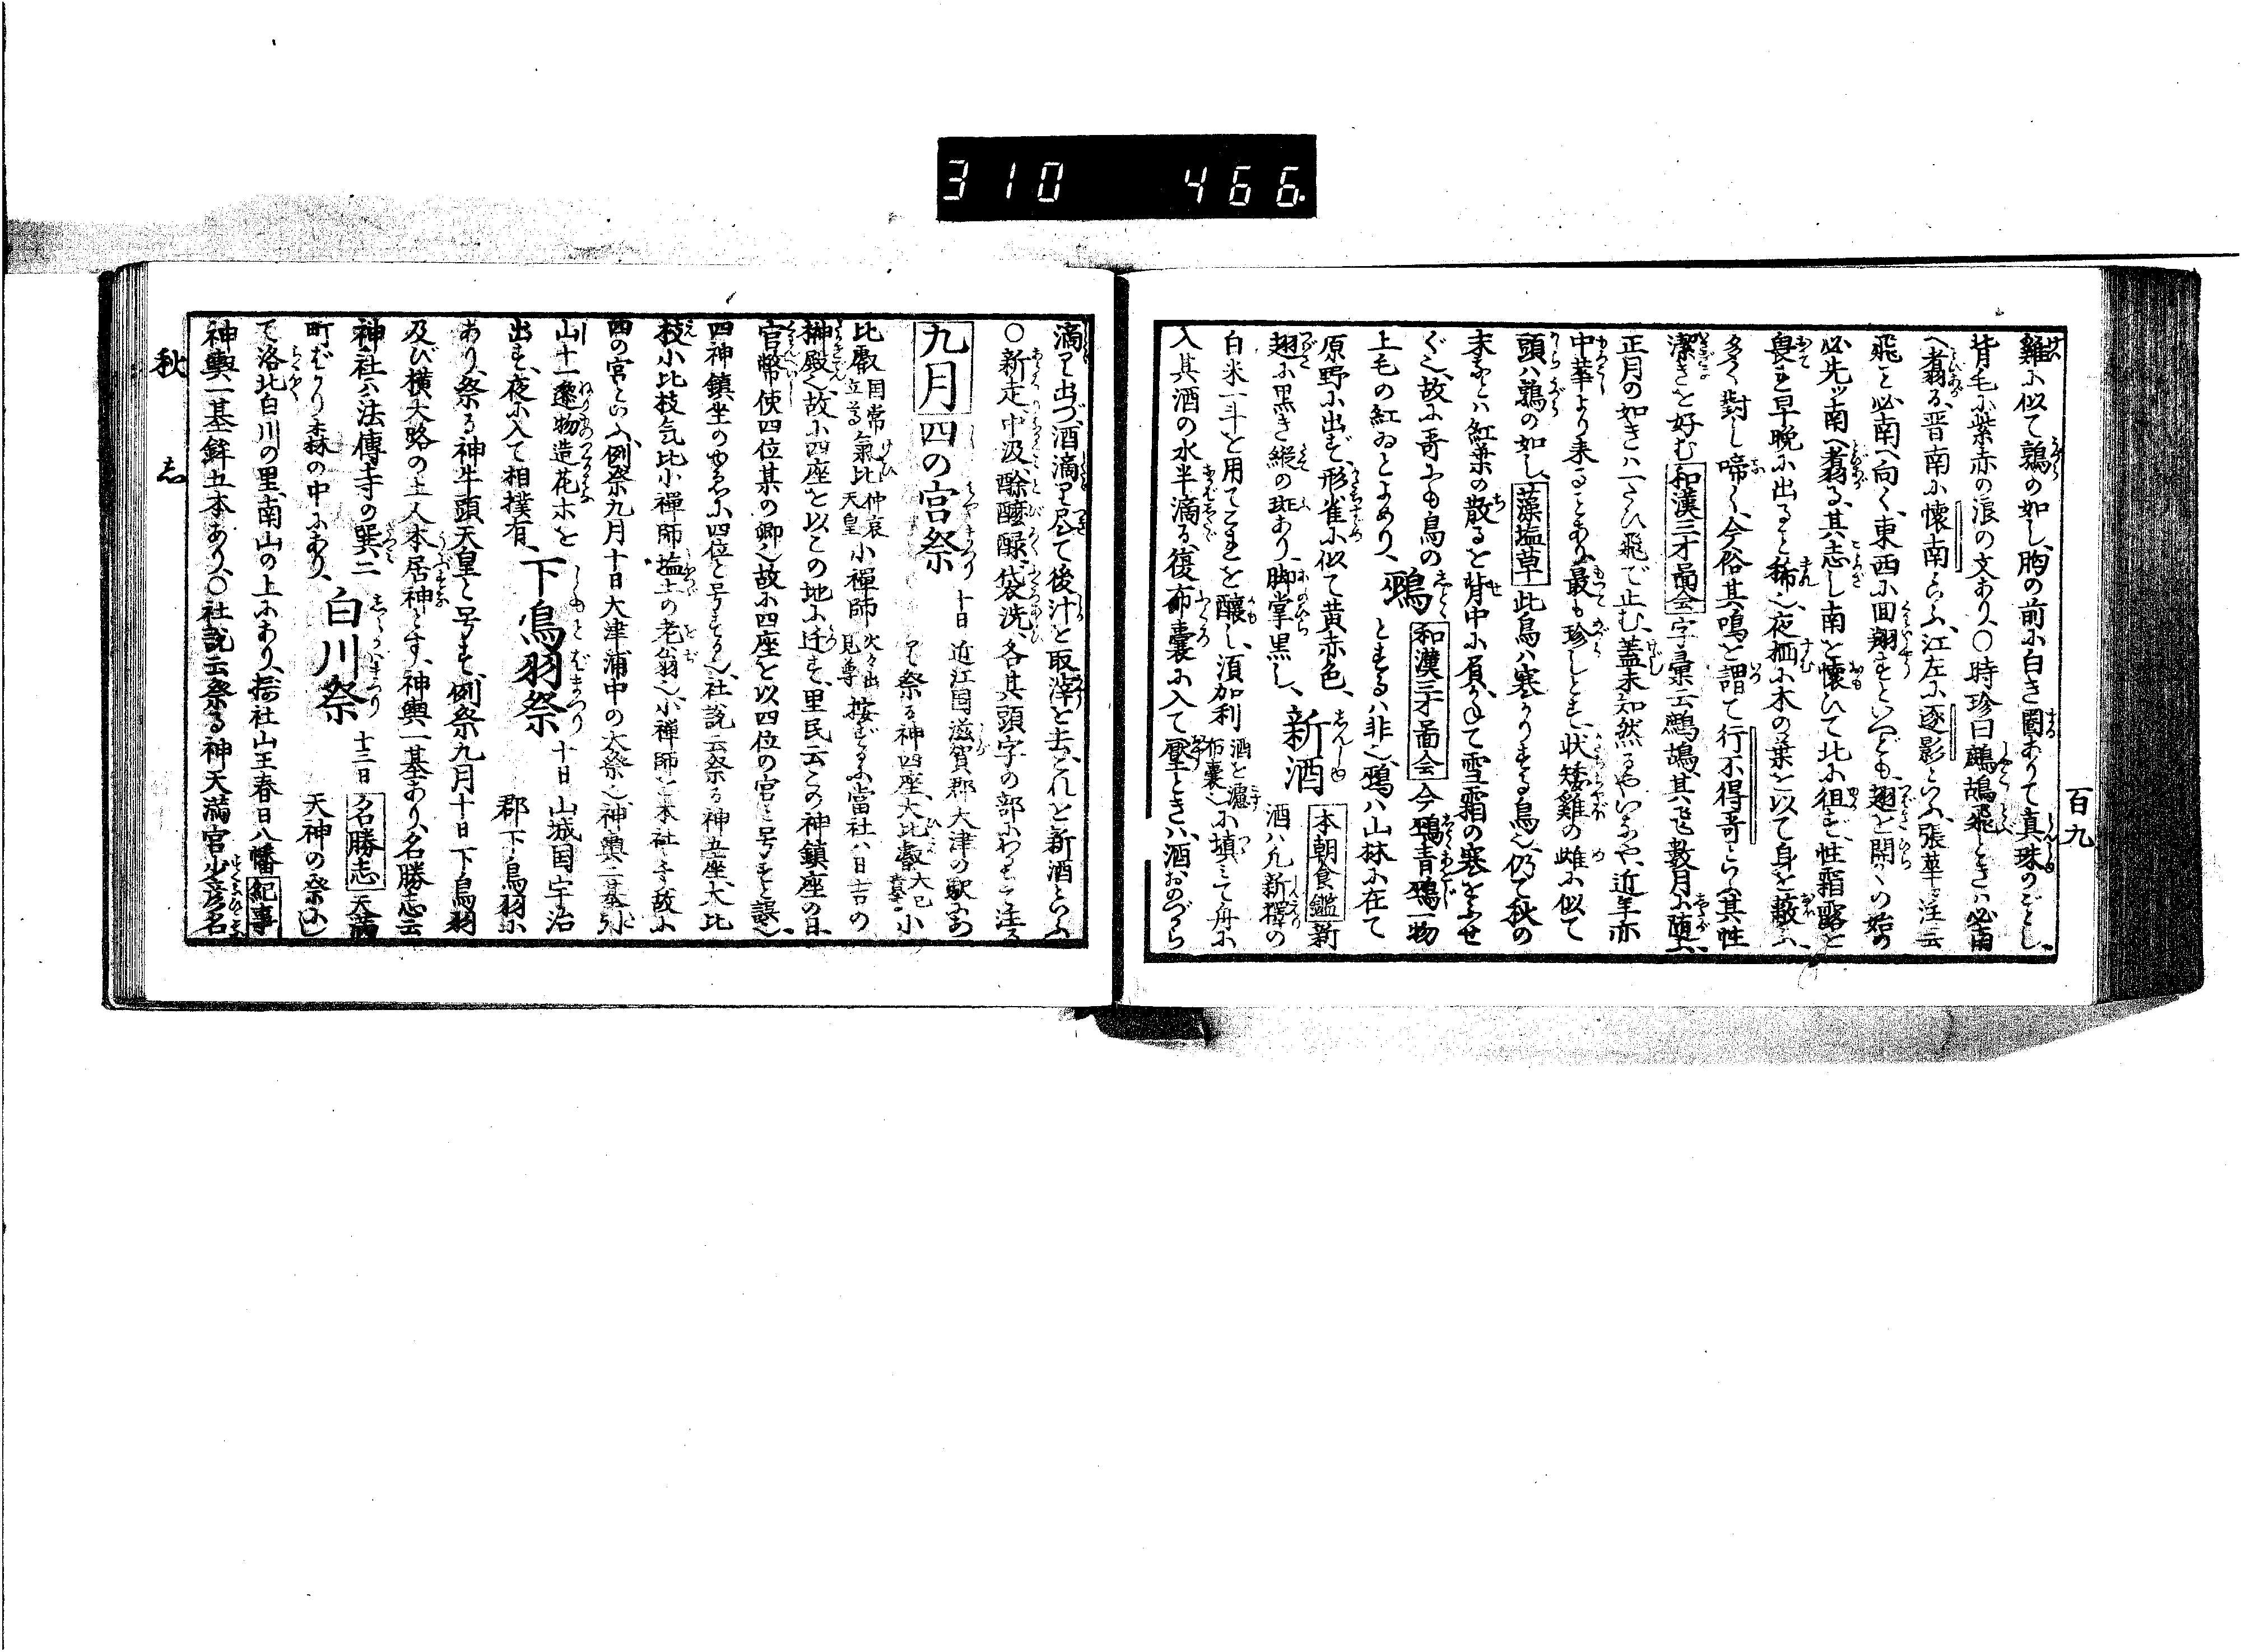 310 466
百九
雞に似て鶉の如し、胸の前に白き圓ありて真珠のごとし、
背毛に紫赤の浪の文あり、○時珍曰鷓鴣飛ときハ必南
へ翥る、晋南に懐南といふ、江左に逐影といふ、張華注云
飛と必南へ向く、東西に回翔すといへども、翅と開くの始め
必先ッ南へ翥る、其志し南と懐ひて北に徂ず、性霜露と
畏る早晩に出ると稀也、夜栖に木の葉と以て身と蔽ふ、
多く對し啼く、今俗其鳴と謂て行不得哥といふ其性
潔きと好む和漢三才圖会字彙云鷓鴣、其飛数月に随ふ、
正月の如きハ一たび飛で止む、蓋未知然るやいなや、近年亦
中華より来ることあり、最も珍しとす、状矮雞の雌に似て
頭ハ鶉の如し、藻塩草此鳥ハ寒がりする鳥也、仍て秋の
末にハ紅葉の散ると背中に負かねて雪霜の寒をふせ
ぐ也、故に哥にも鳥の 鵐 和漢三才圖会今鵐青鵐一物
上毛の紅ゐとよめり、 とするハ非也、鵐ハ山林に在て
原野に出ず、形雀に似て黄赤色、 新酒 本朝食鑑新
翅に黒き縦の斑あり、脚掌黒し、 酒ハ凡新擇の
白米一斗と用てこれを醸し、須加利酒と漉布嚢也に填て舟に
入其酒の水半滴る、復布嚢に入て壓ときハ、酒おのづから
滴り出づ、酒滴り尽て後汁と取滓と去、これと新酒といふ
○新走、中汲、醶醷醁、袋洗、各其頭字の部にわけて注る
九月 四の宮祭 十日 近江国滋賀郡大津の駅にあ
り祭る神四座、大比叡大己貴小
比叡国常立尊氣比仲哀天皇小禪師火々出見尊按ずるに當社ハ日吉の
榊殿也、故に四座と以この地に迁す、里民云この神鎮座の日
官幣使四位某の卿也故に四座と以四位の宮と号すと誤也
四神鎮坐のゆゑに四位と号する也、社説云祭る神五座、大比
枝小比枝気比小禪師塩土の老翁也、小禪師と本社とす故に
四の宮といふ、例祭九月十日大津浦中の大祭也、神輿二基引
山十一邌物造花ホと 下鳥羽祭 十日 山城国宇治
出す、夜に入て相撲有、 郡下鳥羽に
あり、祭る神牛頭天皇と号す、例祭九月十日下鳥羽
及び横大路の土人本居神とす、神輿一基あり、名勝志云
神社ハ法傳寺の巽二 白川祭 十三日 名勝志天満
町ばかり森の中にあり、 天神の祭にし
て洛北白川の里南山の上にあり、摂社山王春日八幡紀事
神輿一基鉾五本あり、○社説云祭る神天満宮少彦名
秋 志